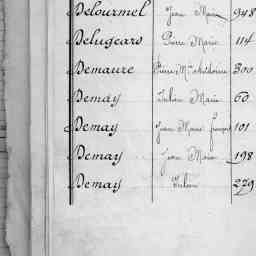 Delourmel Jean Marie 948
Delugeard Pierre Marie 114
Demaure Pierre Mie 300
Demay Julien Marie 60
Demay Jean Marie François 101
Demay Jean Marie 198
Demay Julien 279